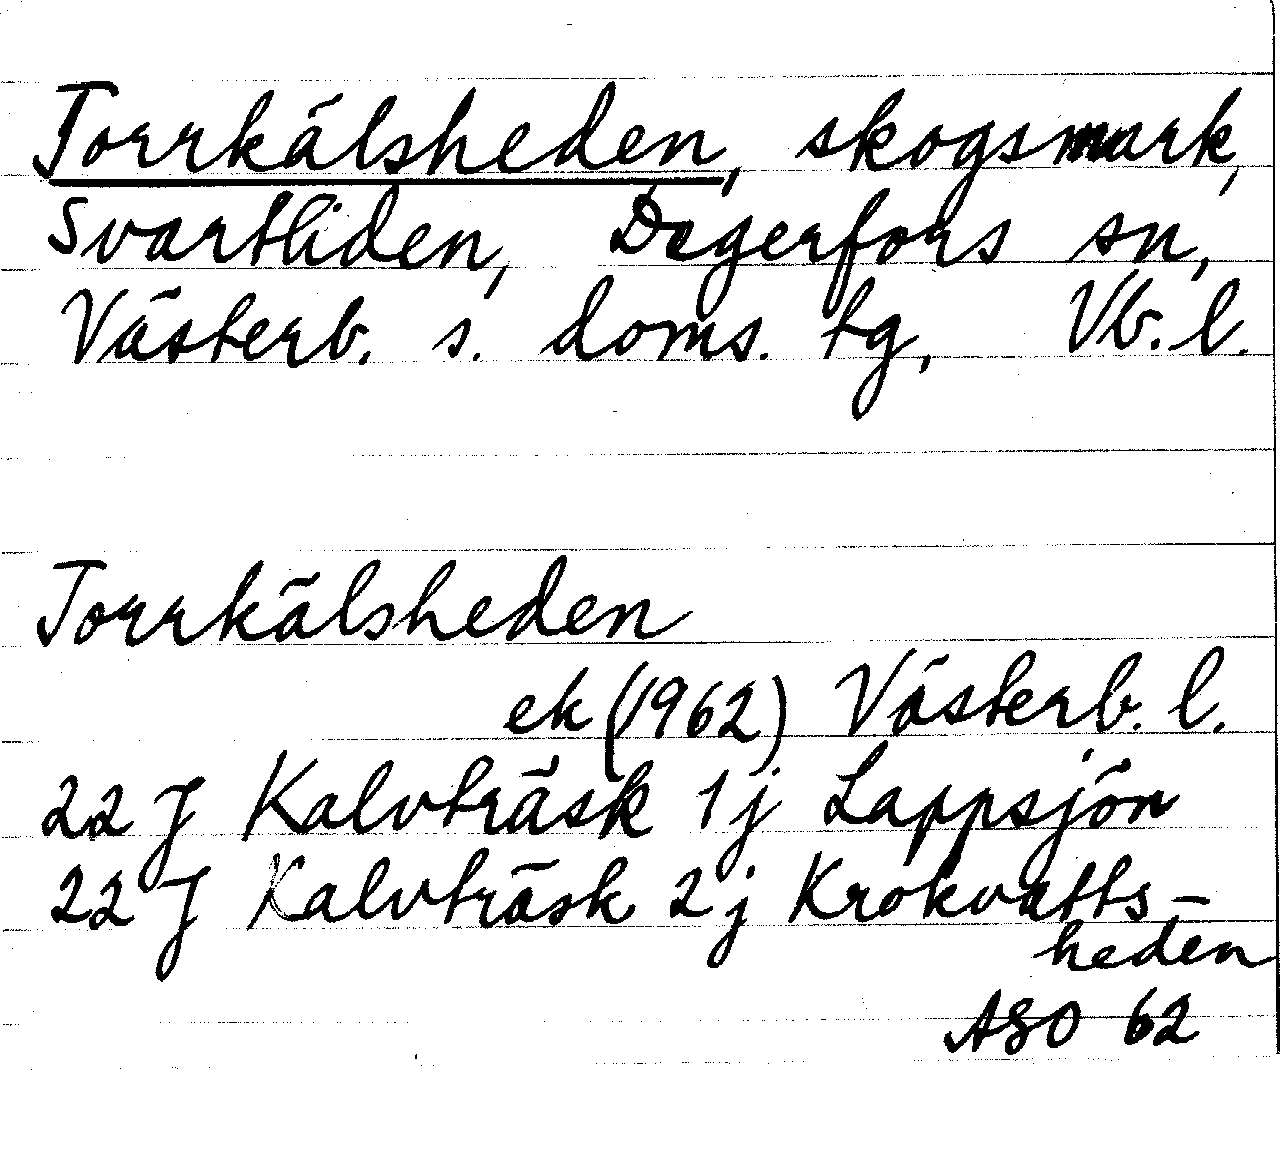 Torrkälsheden, skogsmark,
Svartliden, Degerfors sn,
Västerb. s. doms. tg, Vb. l.
Torrkälsheden
ek (1962) Västerb. l.
22 J Kalvträsk 1 j Lappsjön
22 J Kalvträsk 2 j Krokvatts-
heden
ASO 62